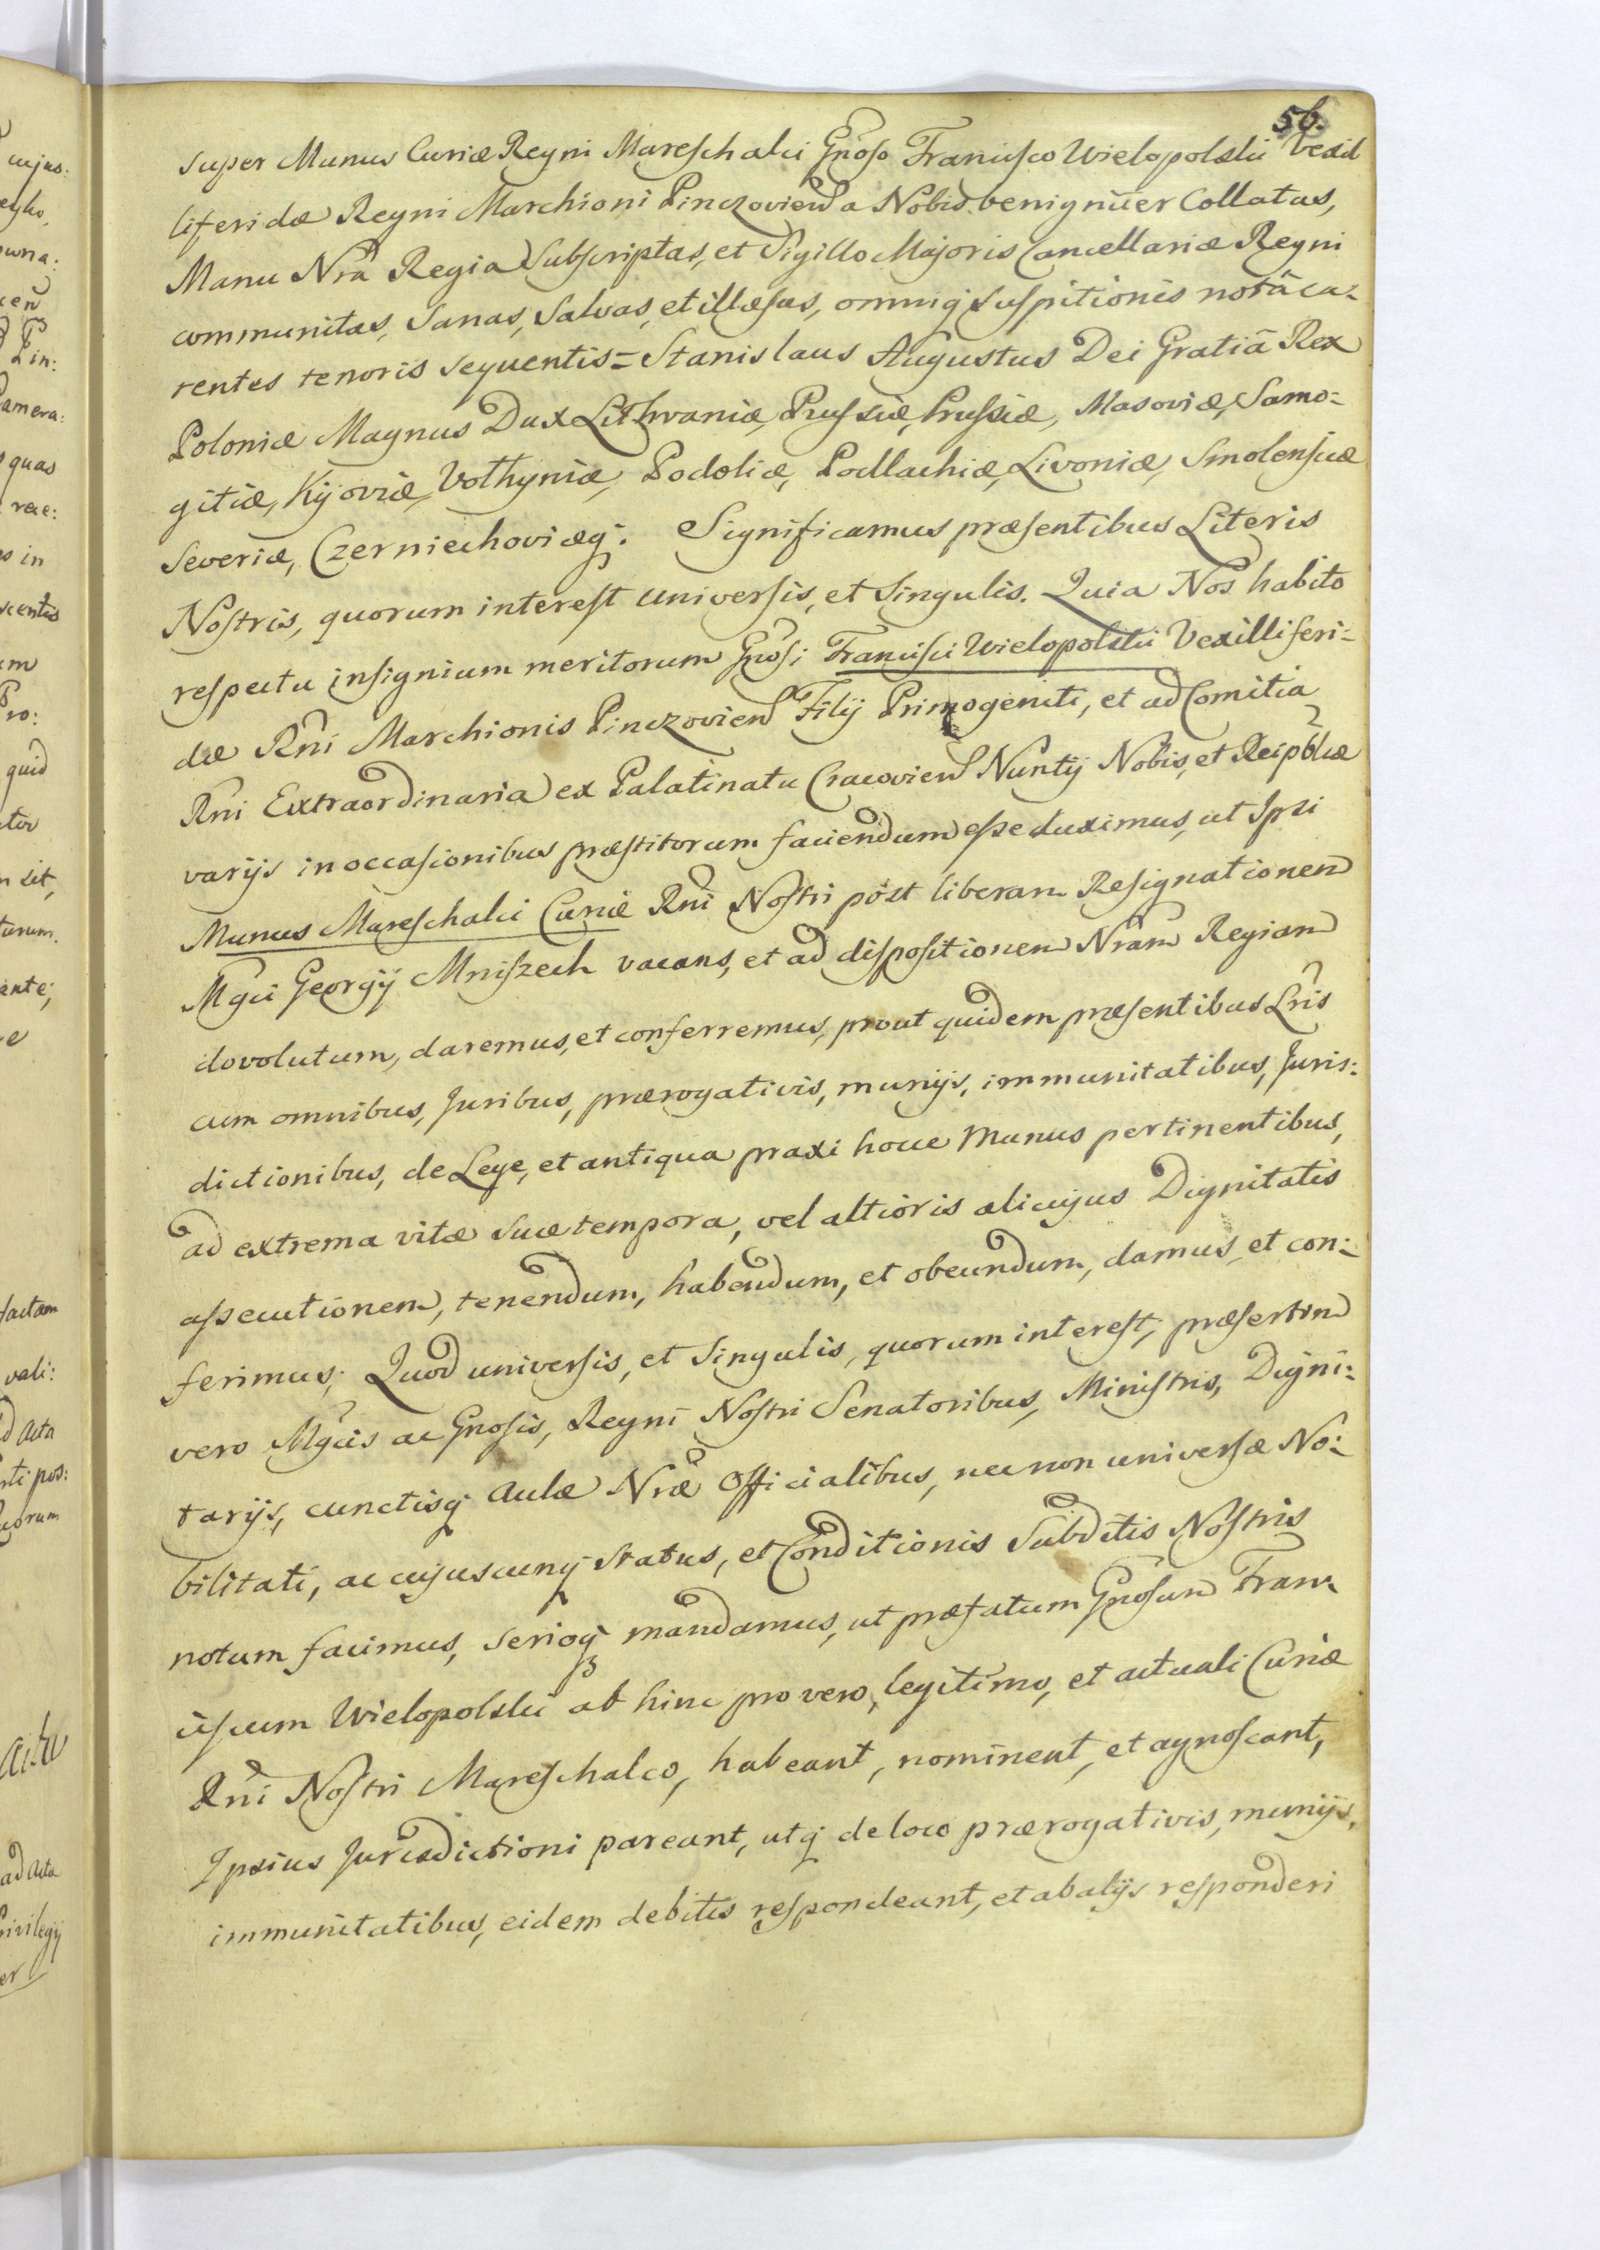 56.
super Munus Curiæ Regni Mareschalci Gnoso Francisco Wielopolski Vexil
liferidæ Regni Marchioni Pinczovien a Nobis benigniter Collatas,
Manu Nra Regia Subscriptas, et Sigillo Majoris Cancellariæ Regni
communitas, Sanas, Salvas, et illæsas, omniq suspitionis notâ ca-
rentes tenoris sequentis = Stanislaus Augustus Dei Gratiâ Rex
Poloniæ Magnus Dux Lithvaniæ, Russiæ, Prussiæ, Masoviæ, Samo-
gitiæ, Kijoviæ, Volhyniæ, Podoliæ, Podlachiæ, Livoniæ, Smolensciæ
Severiæ, Czerniechoviæq. Significamus præsentibus Literis
Nostris, quorum interest universis, et Singulis. Quia Nos habito
respectu insignium meritorum Gnosi Francisci Wielopolski Vexilliferi-
dæ Rni Marchionis Pinczovien Filij Primogeniti, et ad Comitia
Rni Extraordinaria ex Palatinatu Cracovien Nuntij Nobis, et Reipblicæ
varijs in occasionibus præstitorum faciendum esse duximus, ut Ipsi
Munus Mareschalci Curiæ Rni Nostri post liberam Resignationem
Mgci Georgij Mniszech vacans, et ad dispositionem Nram Regiam
dovolutum, daremus, et conferremus, prout quidem præsentibus Lris
cum omnibus, Juribus, prærogativis, munijs, immunitatibus, Juris:
dictionibus, de Lege, et antiqua praxi hocce Munus pertinentibus,
ad extrema vitæ suæ tempora, vel altioris alicujus Dignitatis
assecutionem, tenendum, habendum, et obeundum, damus, et con:
ferimus; Quod universis, et Singulis, quorum interest, præsertim
vero Mgcis ac Gnosis, Regni Nostri Senatoribus, Ministris, Digni:
tarijs, cunctisq Aulæ Nræ Officialibus, nec non universæ No:
bilitati, ac cujuscunq status, et Conditionis Subditis Nostris
notum facimus, serioq mandamus, ut præfatum Gnosum Fran-
ciscum Wielopolski ab hinc pro vero, legitimo, et actuali Curiæ
Rni Nostri Mareschalco, habeant, nominent, et agnoscant,
Ipsius Jurisdictioni pareant, utq de loco prærogativis, munijs,
immunitatibus, eidem debitis respondeant, et ab alijs responderi